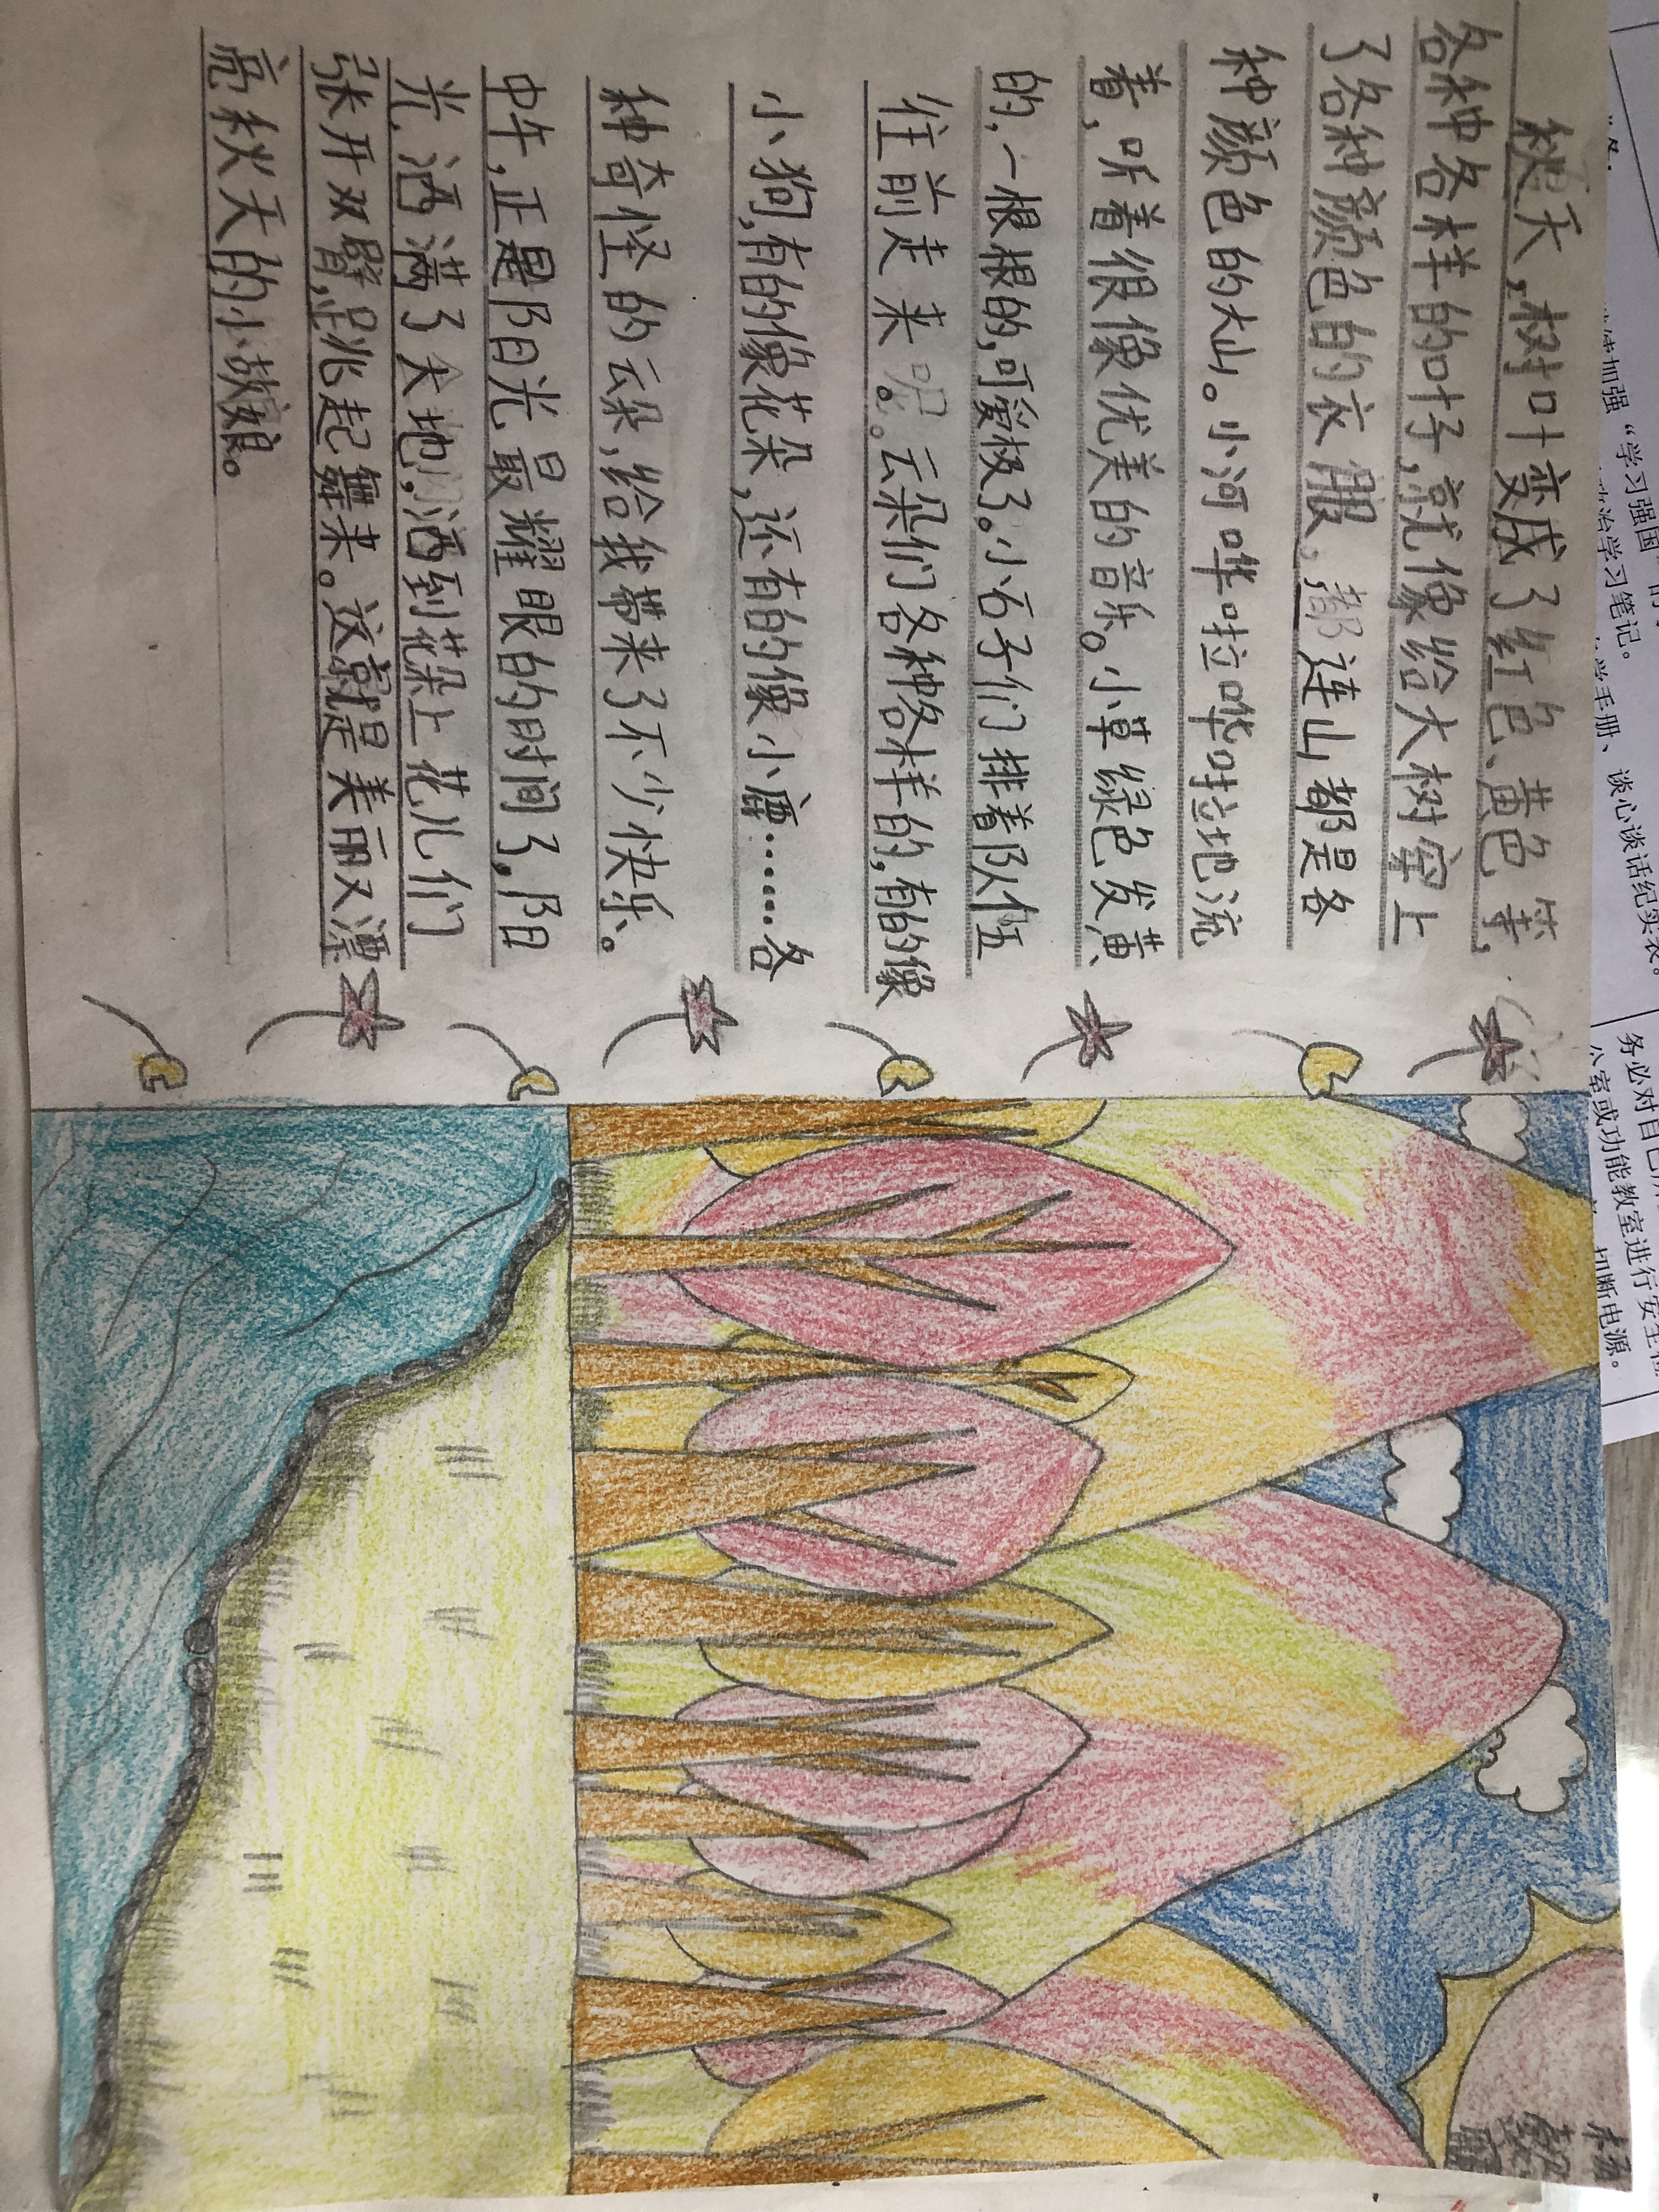 秋天,树叶变成了红色、黄色等,
各种各样的叶子,就像给大树穿上
了各种颜色的衣服,都连山都是各
种颜色的大山。小河哗啦哗啦地流
着,听着很像优美的音乐。小草绿色发黄
的,一根根的,可爱极了。小石子们排着队伍
往前走来呢。云朵们各种各样的,有的像
小狗,有的像花朵,还有的像小鹿……各
种奇怪的云朵,给我带来了不少快乐。
中午,正是阳光最耀眼的时间了,阳
光洒满了大地,洒到花朵上花儿们
张开双臂,跳起舞来。这就是美丽又漂
亮秋天的小姑娘。
加强“学习强国”
政治学习笔记。
学手册、谈心谈话纪实表。
务必对自己
公室或功能教室进行安全检
切断电源。
杨